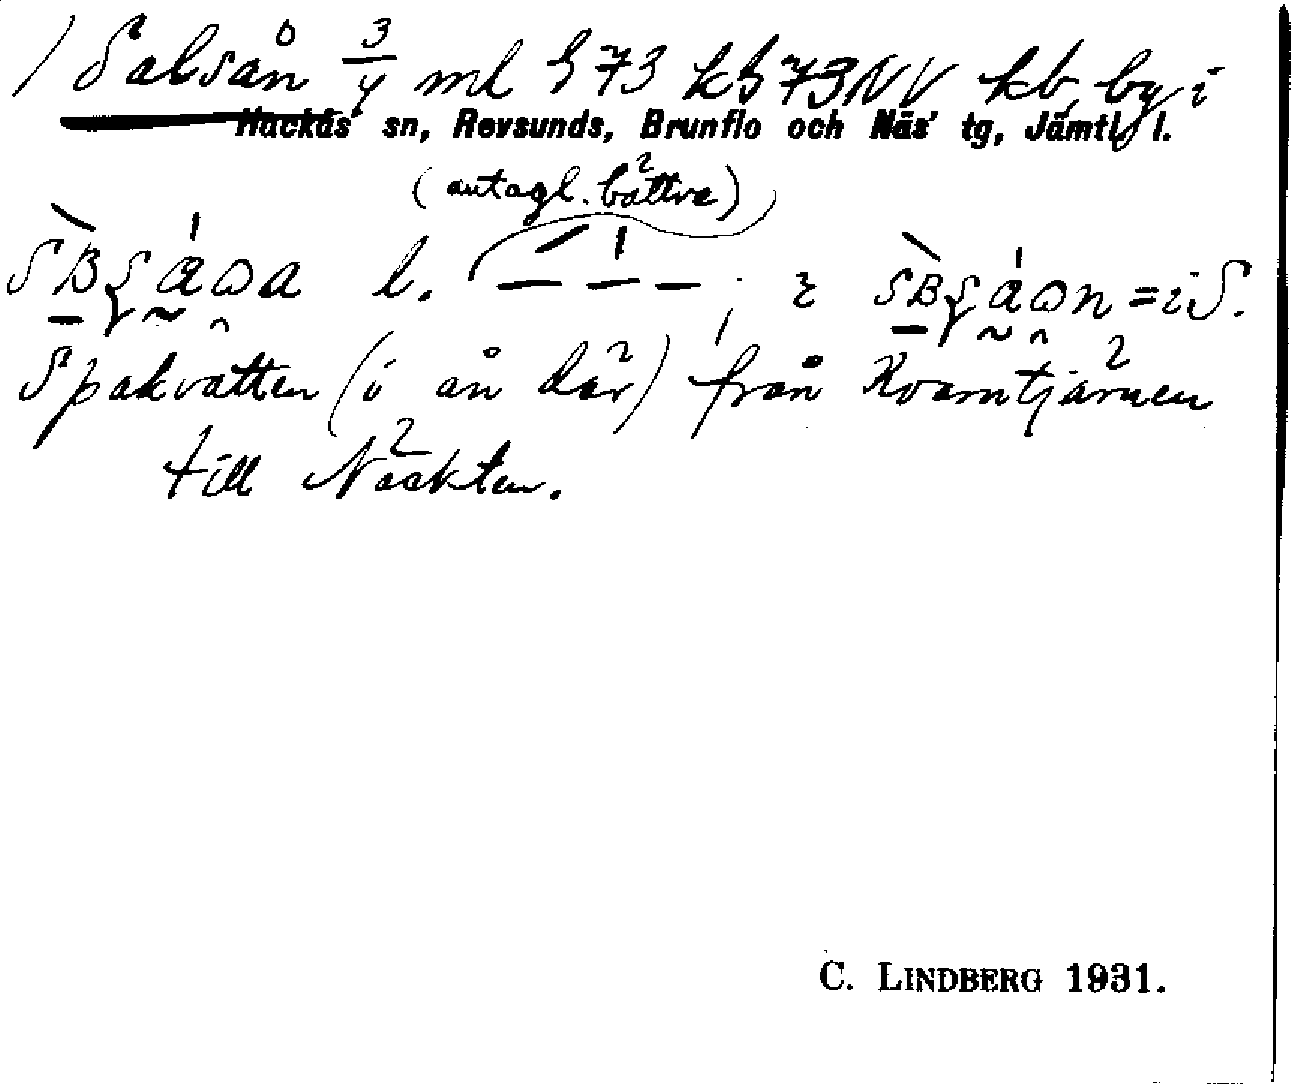 1 Salsån 3/4 ml 73 73 NV kb, by i
Hackås sn, Revsunds, Brunflo och Näs' tg, Jämtl. l.
(antagl. bättre)
l. = i S.
Spakvatten (i ån där) från Kvarntjärnen
till Näckten.
C. LINDBERG 1931.